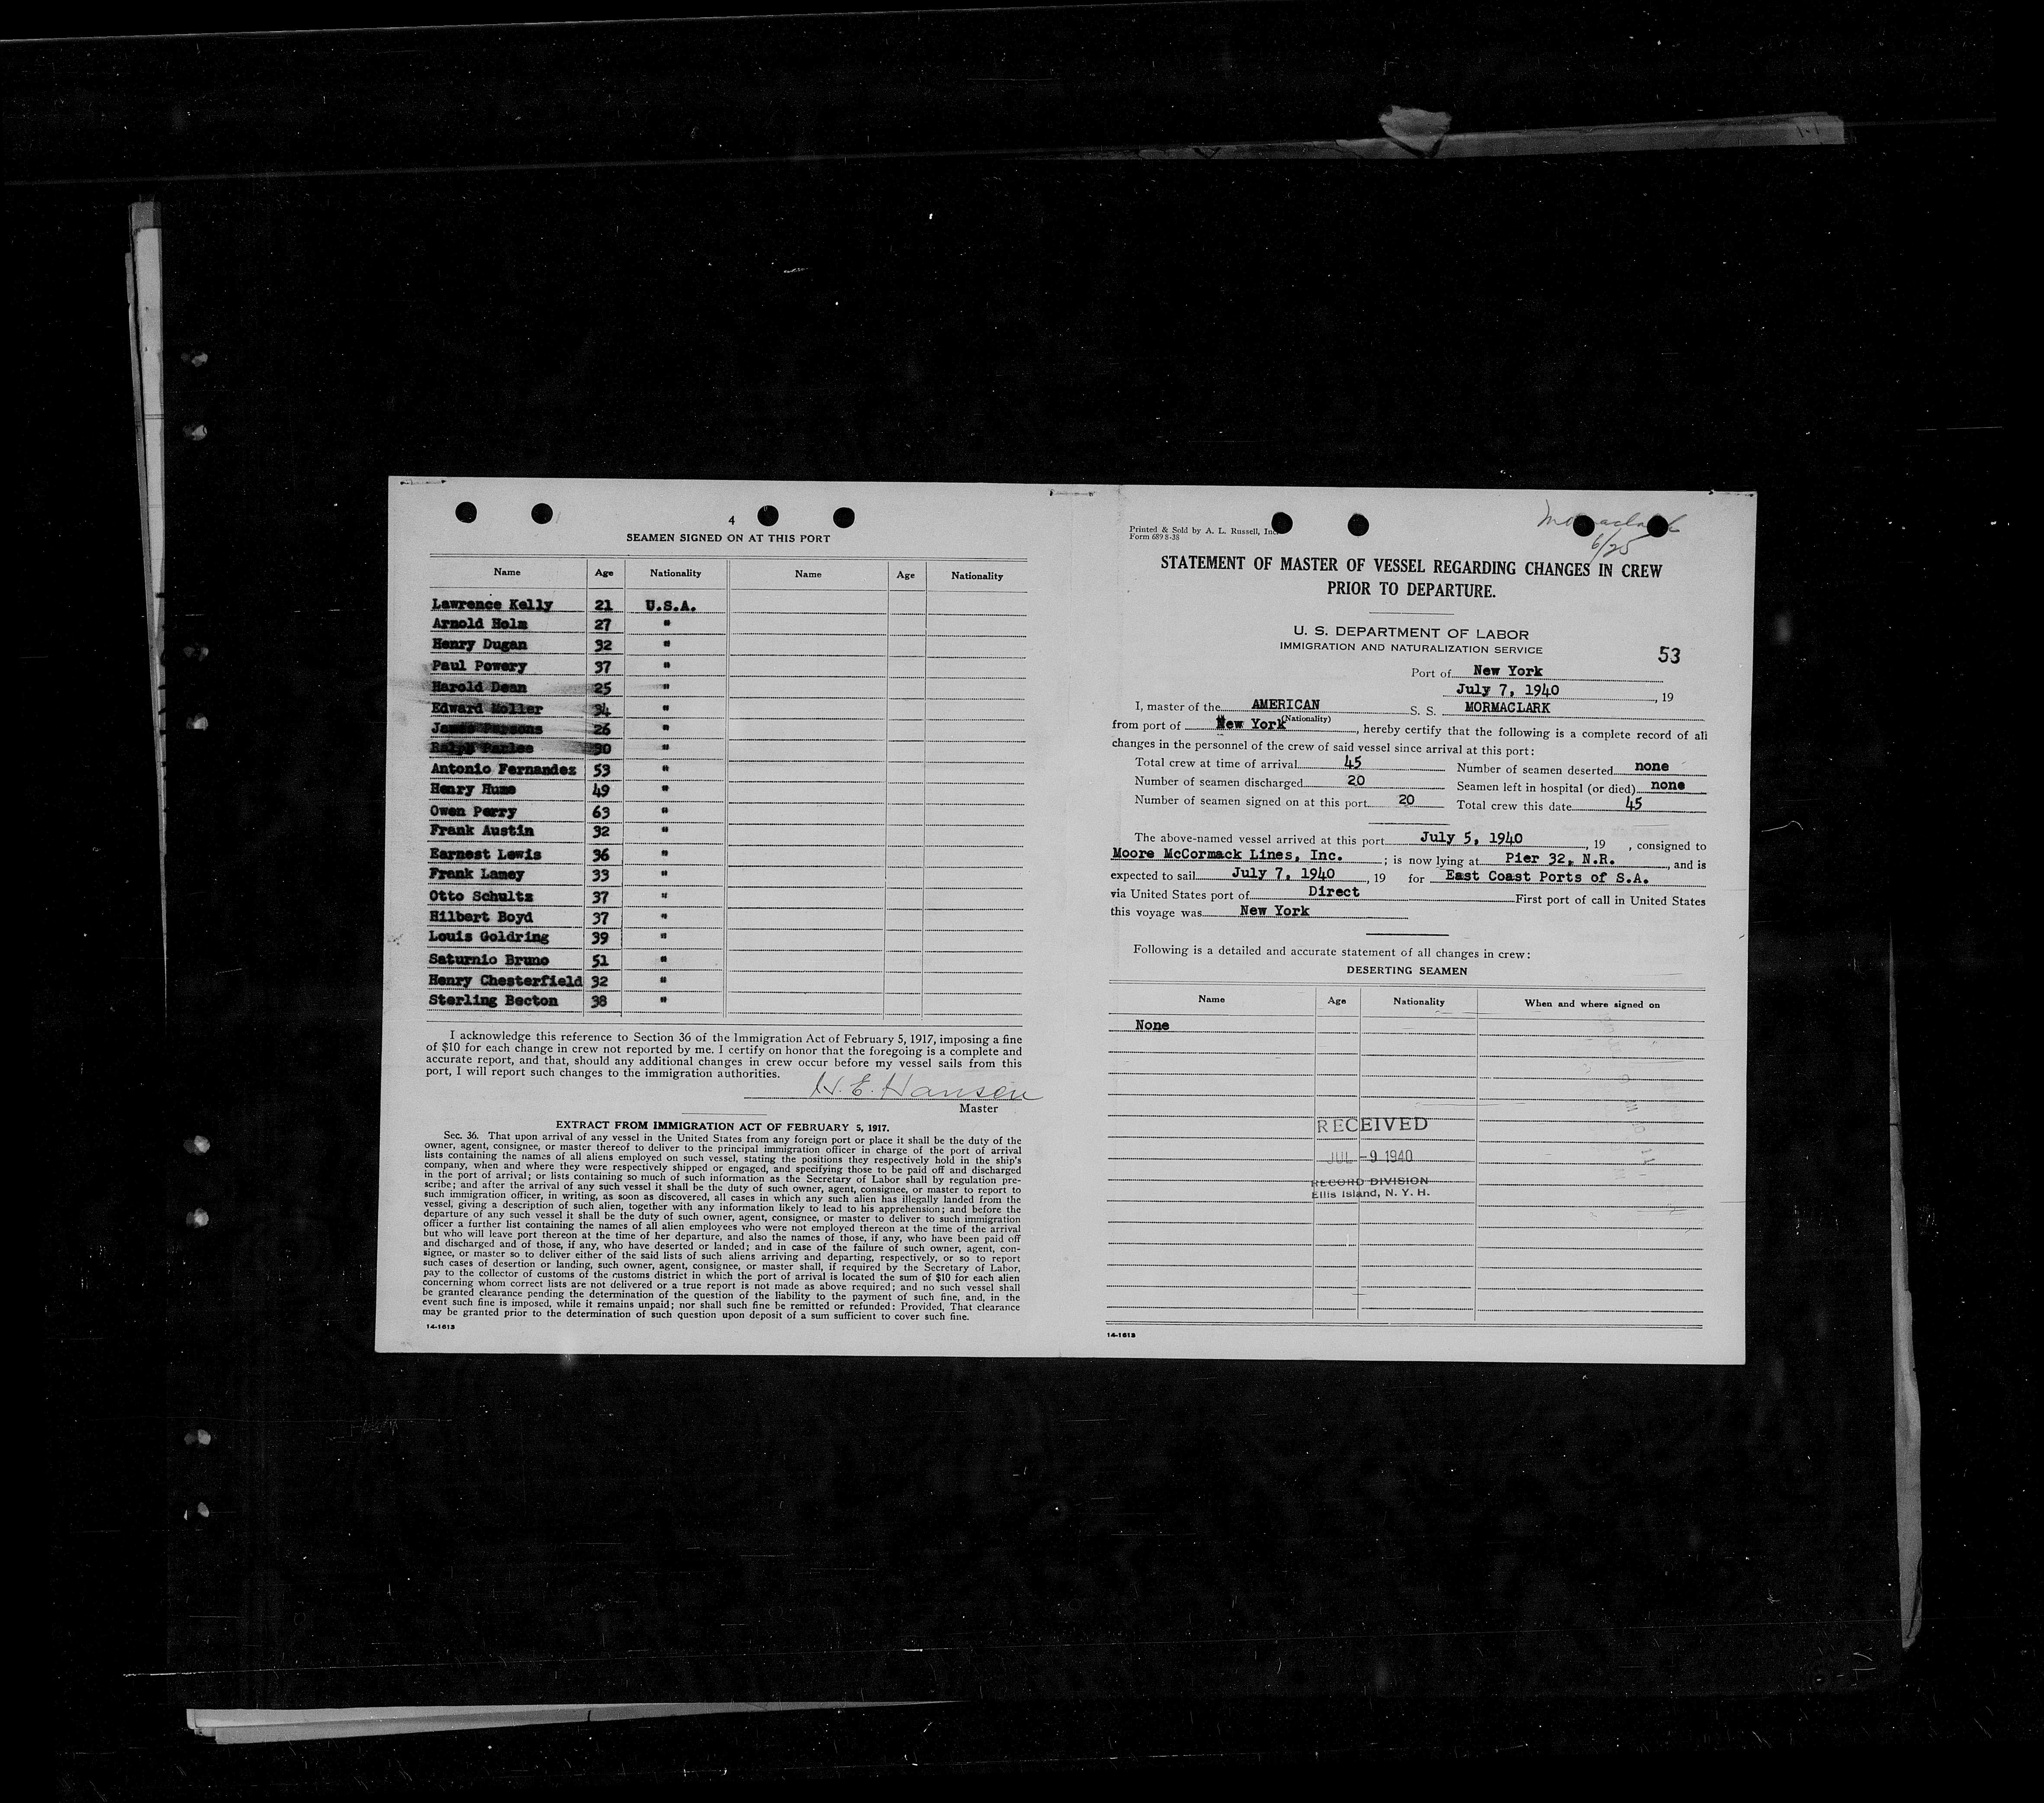 4
SEAMEN SIGNED ON AT THIS PORT
Name Age Nationality Name Age Nationality
Lawrence Kelly 21 U.S.A.
Arnold Holm 27 "
Henry Dugan 32 "
Paul Powery 37 "
Harold Dean 25 "
Edward Moller 34 "
James Parsons 26 "
Ralph "
Antonio Fernandez 53 "
Henry Hume 49 "
Owen Perry 63 "
Frank Austin 32 "
Earnest Lewis 36 "
Frank Laney 33 "
Otto Schultz 37 "
Hilbert Boyd 37 "
Louis Goldring 39 "
Saturnio Bruno 51 "
Henry Chesterfield 32 "
Sterling Becton 38 "
I acknowledge this reference to Section 36 of the Immigration Act of February 5, 1917, imposing a fine
of $10 for each change in crew not reported by me. I certify on honor that the foregoing is a complete and
accurate report, and that, should any additional changes in crew occur before my vessel sails from this
port, I will report such changes to the immigration authorities.
H. E. Hansen
Master
EXTRACT FROM IMMIGRATION ACT OF FEBRUARY 5, 1917.
Sec. 36. That upon arrival of any vessel in the United States from any foreign port or place it shall be the duty of the
owner, agent, consignee, or master thereof to deliver to the principal immigration officer in charge of the port of arrival
lists containing the names of all aliens employed on such vessel, stating the positions they respectively hold in the ship's
company, when and where they were respectively shipped or engaged, and specifying those to be paid off and discharged
in the port of arrival; or lists containing so much of such information as the Secretary of Labor shall by regulation pre-
scribe; and after the arrival of any such vessel it shall be the duty of such owner, agent, consignee, or master to report to
such immigration officer, in writing, as soon as discovered, all cases in which any such alien has illegally landed from the
vessel, giving a description of such alien, together with any information likely to lead to his apprehension; and before the
departure of any such vessel it shall be the duty of such owner, agent, consignee, or master to deliver to such immigration
officer a further list containing the names of all alien employees who were not employed thereon at the time of the arrival
but who will leave port thereon at the time of her departure, and also the names of those, if any, who have been paid off
and discharged and of those, if any, who have deserted or landed; and in case of the failure of such owner, agent, con-
signee, or master so to deliver either of the said lists of such aliens arriving and departing, respectively, or so to report
such cases of desertion or landing, such owner, agent, consignee, or master shall, if required by the Secretary of Labor,
pay to the collector of customs of the customs district in which the port of arrival is located the sum of $10 for each alien
concerning whom correct lists are not delivered or a true report is not made as above required; and no such vessel shall
be granted clearance pending the determination of the question of the liability to the payment of such fine, and, in the
event such fine is imposed, while it remains unpaid; nor shall such fine be remitted or refunded: Provided, That clearance
may be granted prior to the determination of such question upon deposit of a sum sufficient to cover such fine.
14-1613
Printed & Sold by A. L. Russell, Inc.
Form 689 8-38
Mormaclark
6/25
STATEMENT OF MASTER OF VESSEL REGARDING CHANGES IN CREW
PRIOR TO DEPARTURE.
U. S. DEPARTMENT OF LABOR
IMMIGRATION AND NATURALIZATION SERVICE
53
Port of New York
July 7, 1940, 19
I, master of the AMERICAN S. S. MORMACLARK
(Nationality)
from port of New York, hereby certify that the following is a complete record of all
changes in the personnel of the crew of said vessel since arrival at this port:
Total crew at time of arrival 45 Number of seamen deserted none
Number of seamen discharged 20 Seamen left in hospital (or died) none
Number of seamen signed on at this port 20 Total crew this date 45
The above-named vessel arrived at this port July 5, 1940, 19 , consigned to
Moore McCormack Lines, Inc. ; is now lying at Pier 32, N.R., and is
expected to sail July 7, 1940, 19 for East Coast Ports of S.A.
via United States port of Direct First port of call in United States
this voyage was New York
Following is a detailed and accurate statement of all changes in crew:
DESERTING SEAMEN
Name Age Nationality When and where signed on
None
RECEIVED
JUL -9 1940
RECORD DIVISION
Ellis Island, N. Y. H.
14-1613